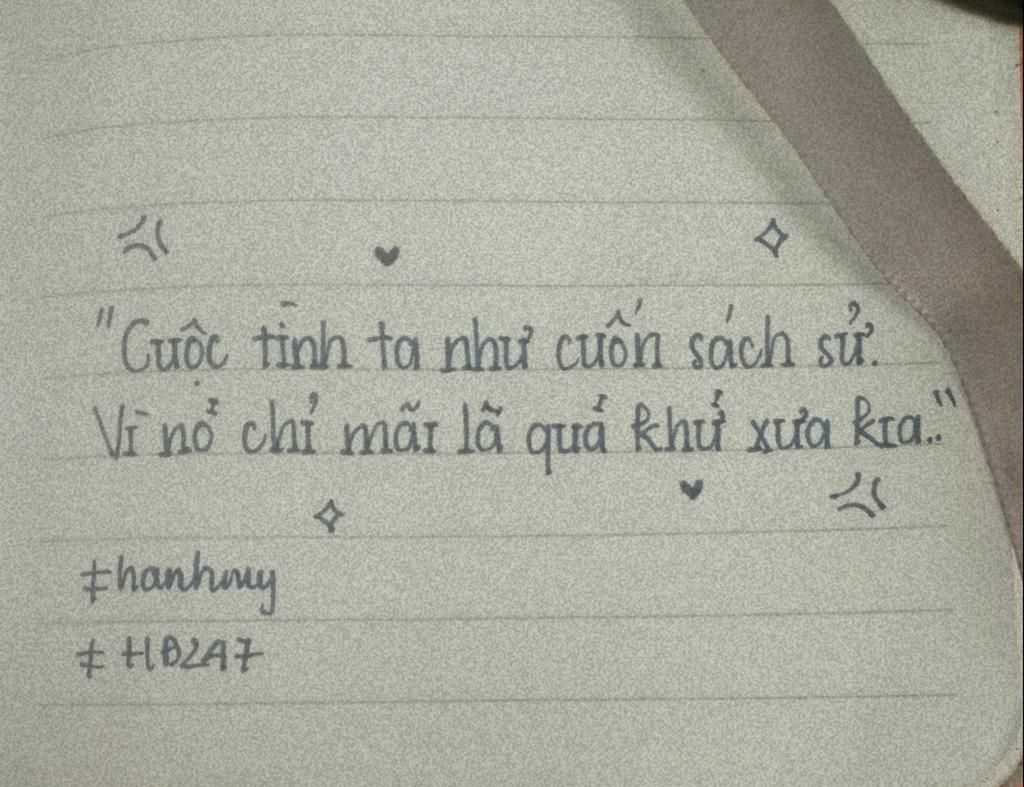 "Cuộc tình ta như cuốn sách sử.
Vì nó chỉ mãi là quá khứ xưa kia.."
#hanhmy
# HB2A7